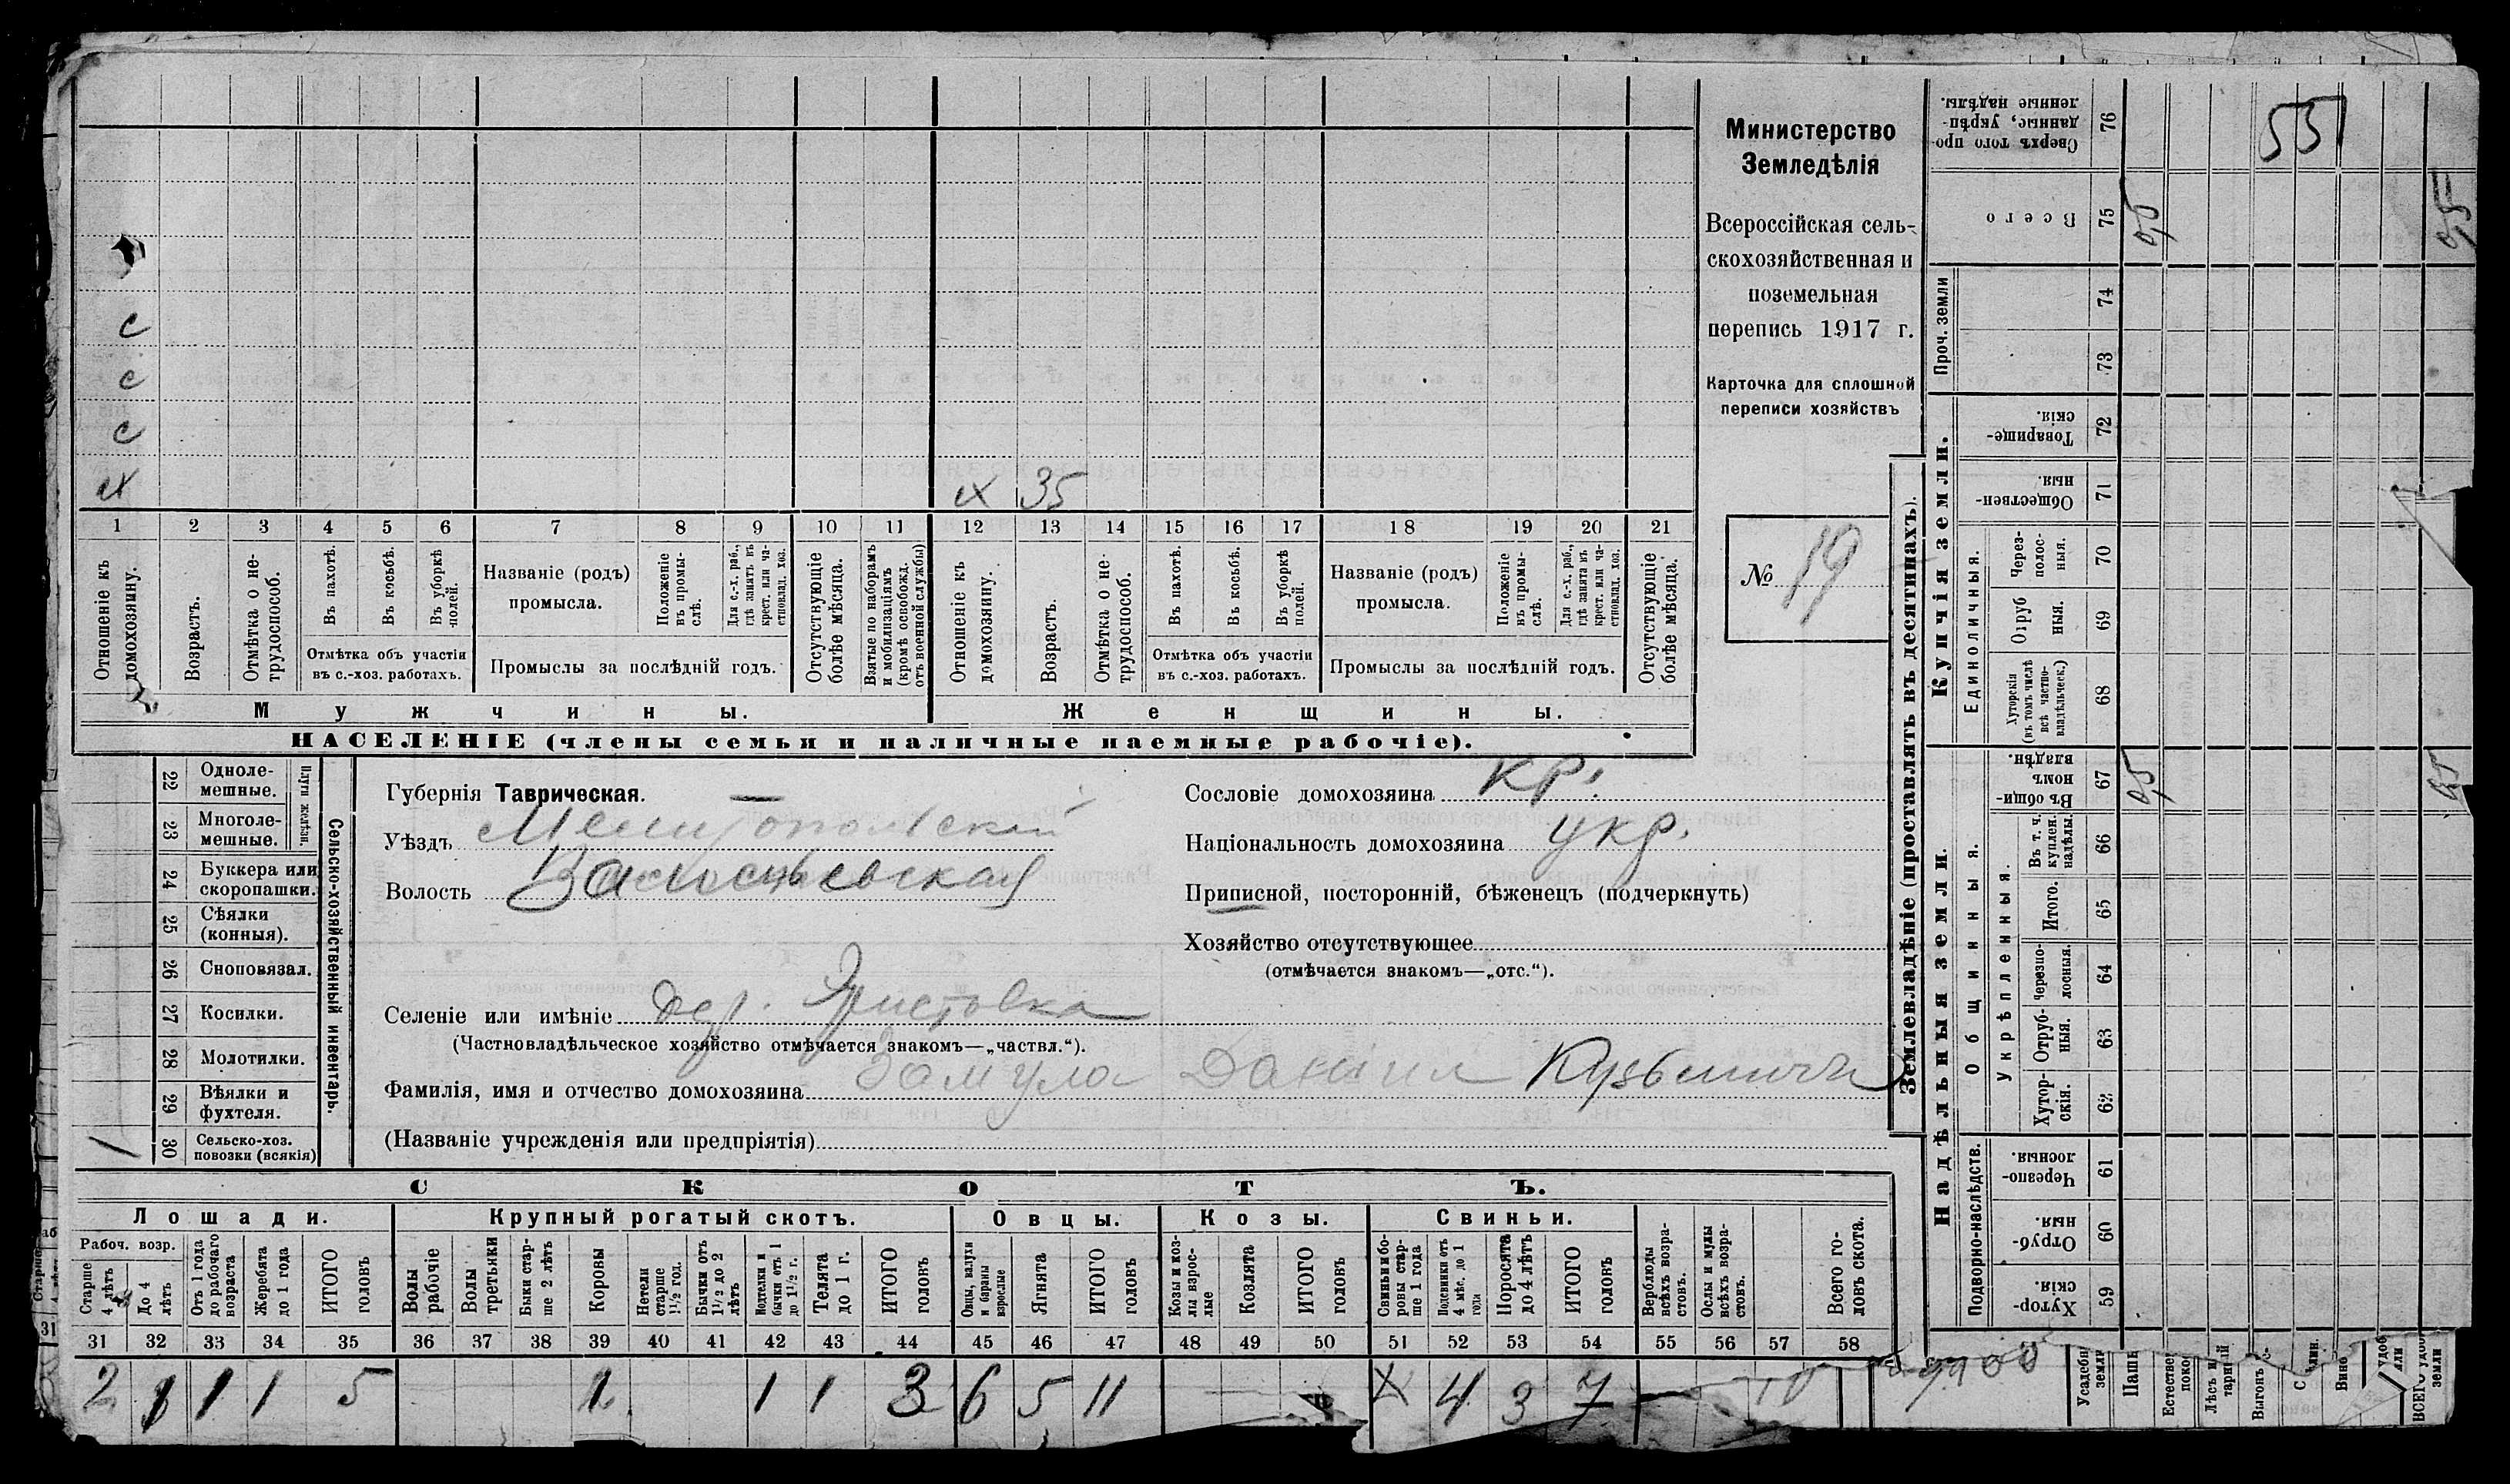 с
с
с
х
х 35
1 2 3 4 5 6 7 8 9 10 11 12 13 14 15 16 17 18 19 20 21
Отношеніе къ домохозяину.
Возрастъ.
Отмѣтка о нетрудоспособ.
Въ пахотѣ.
Въ косьбѣ.
Въ уборкѣ полей.
Отмѣтка объ участіи
въ с.-хоз. работахъ.
Названіе (родъ)
промысла.
Положеніе въ промыслѣ.
Для с.-х. раб., гдѣ занятъ въ крест. или частновлад. хоз.
Промыслы за послѣдній годъ.
Отсутствующіе болѣе мѣсяца.
Взятые по наборамъ и мобилизаціямъ (кромѣ освобожд. отъ военной службы)
Отношеніе къ домохозяину.
Возрастъ.
Отмѣтка о нетрудоспособ.
Въ пахотѣ.
Въ косьбѣ.
Въ уборкѣ полей.
Отмѣтка объ участіи
въ с.-хоз. работахъ.
Названіе (родъ)
промысла.
Положеніе въ промыслѣ.
Для с.-х. раб., гдѣ занята въ крест. или частновлад. хоз.
Промыслы за послѣдній годъ.
Отсутствующіе болѣе мѣсяца.
Мужчины.
Женщины.
НАСЕЛЕНІЕ (члены семьи и наличные наемные рабочіе).
Министерство
Земледѣлія
Всероссійская сель-
скохозяйственная и
поземельная
перепись 1917 г.
Карточка для сплошной
переписи хозяйствъ
№ 19
Сельско-хозяйственный инвентарь.
Плуги желѣзн.
22 Одноле-
мешные.
23 Многоле-
мешные.
24 Буккера или
скоропашки.
25 Сѣялки
(конныя).
26 Сноповязал.
27 Косилки.
28 Молотилки.
29 Вѣялки и
фухтеля.
1 30 Сельско-хоз.
повозки (всякія)
Губернія Таврическая.
Уѣздъ Мелитопольский
Волость Васильевская
Селеніе или имѣніе дер. Эристовка
(Частновладѣльческое хозяйство отмѣчается знакомъ—„частвл.“).
Фамилія, имя и отчество домохозяина Замула Даніил Кузьмичъ
(Названіе учрежденія или предпріятія)
Сословіе домохозяина кр.
Національность домохозяина укр.
Приписной, посторонній, бѣженецъ (подчеркнуть)
Хозяйство отсутствующее
(отмѣчается знакомъ—„отс.“).
СКОТЪ.
Лошади. Крупный рогатый скотъ. Овцы. Козы. Свиньи.
Рабоч. возр.
Старше 4 лѣтъ
До 4 лѣтъ
Отъ 1 года до рабочаго возраста
Жеребята до 1 года
ИТОГО головъ
Волы рабочіе
Волы третьяки
Быки старше 2 лѣтъ
Коровы
Нетели старше 1½ год.
Бычки отъ 1½ до 2 лѣтъ
Подтелки и бычки отъ 1 до 1½ г.
Телята до 1 г.
ИТОГО головъ
Овцы, валухи и бараны взрослые
Ягнята
ИТОГО головъ
Козы и козлы взрослые
Козлята
ИТОГО головъ
Свиньи и боровы старше 1 года
Подсвинки отъ 4 мѣс. до 1 года
Поросята до 4 лѣтъ
ИТОГО головъ
Верблюды всѣхъ возрастовъ.
Ослы и мулы всѣхъ возрастовъ.
Всего головъ скота.
31 32 33 34 35 36 37 38 39 40 41 42 43 44 45 46 47 48 49 50 51 52 53 54 55 56 57 58
2 1 1 1 5 1 1 1 3 6 5 11 4 3 7
Землевладѣніе (проставлять въ десятинахъ).
Купчія земли.
Надѣльныя земли.
Проч. земли
Единоличныя.
Общинныя.
Укрѣпленныя.
Подворно-наслѣдств.
76 Сверхъ того проданные, укрѣпленные надѣлы.
75 Всего 0,5 0,5
74
73
72 Товарищескія.
71 Общественныя.
70 Черезполосныя.
69 Отрубныя.
68 Хуторскія (въ томъ числѣ всѣ частновладѣльческ.)
67 Въ общинномъ владѣн. 0,5 0,5
66 Въ т. ч. куплен. надѣлы.
65 Итого.
64 Черезполосныя.
63 Отрубныя.
62 Хуторскія.
61 Черезполосныя.
60 Отрубныя.
59 Хуторскія.
551